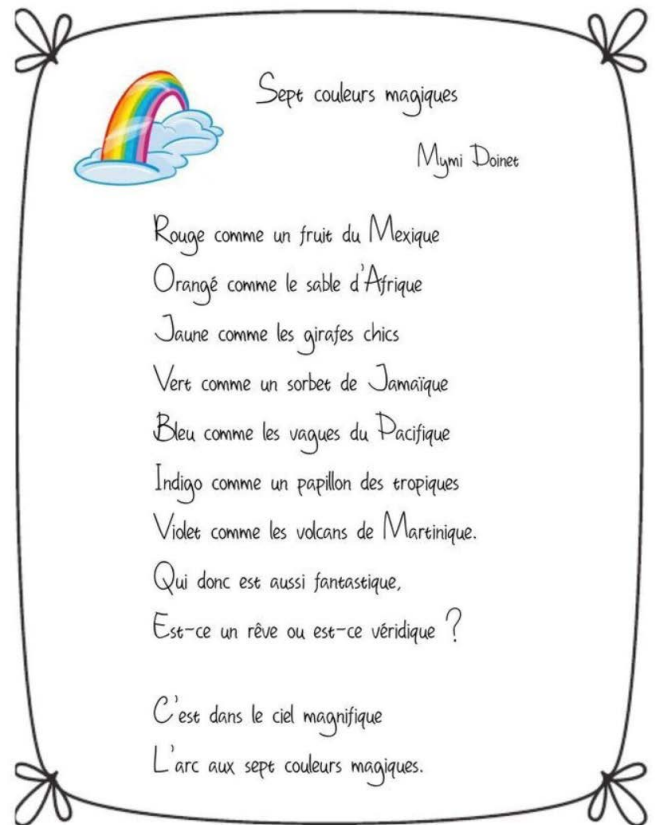 Sept couleurs magiques
Mymi Doinet
Rouge comme un fruit du Mexique
Orangé comme le sable d'Afrique
Jaune comme les girafes chics
Vert comme un sorbet de Jamaïque
Bleu comme les vagues du Pacifique
Indigo comme un papillon des tropiques
Violet comme les volcans de Martinique.
Qui donc est aussi fantastique,
Est-ce un rêve ou est-ce véridique ?
C'est dans le ciel magnifique
L'arc aux sept couleurs magiques.